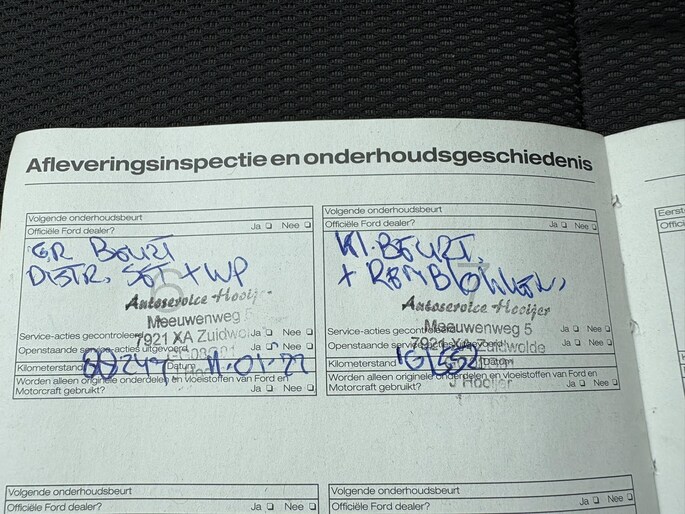 Afleveringsinspectie en onderhoudsgeschiedenis
Volgende onderhoudsbeurt
Officiële Ford dealer? Ja Nee
GR BEURT
DISTR. SET + WP
6
Autoservice Hooijer
Meeuwenweg 5
7921 XA Zuidwolde
Service-acties gecontroleerd Ja Nee
Openstaande service-acties uitgevoerd Ja Nee
Kilometerstand Datum 11-01-22
Worden alleen originele onderdelen en vloeistoffen van Ford en
Motorcraft gebruikt? Ja Nee
Volgende onderhoudsbeurt
Officiële Ford dealer? Ja Nee
Kl. BEURT,
+ REMBLOKKEN,
7
Autoservice Hooijer
Meeuwenweg 5
7921 XA Zuidwolde
Service-acties gecontroleerd Ja Nee
Openstaande service-acties uitgevoerd Ja Nee
Kilometerstand 101552 Datum
Worden alleen originele onderdelen en vloeistoffen van Ford en
Motorcraft gebruikt? Ja Nee
J Hooijer
Volgende onderhoudsbeurt
Officiële Ford dealer? Ja Nee
Volgende onderhoudsbeurt
Officiële Ford dealer? Ja Nee